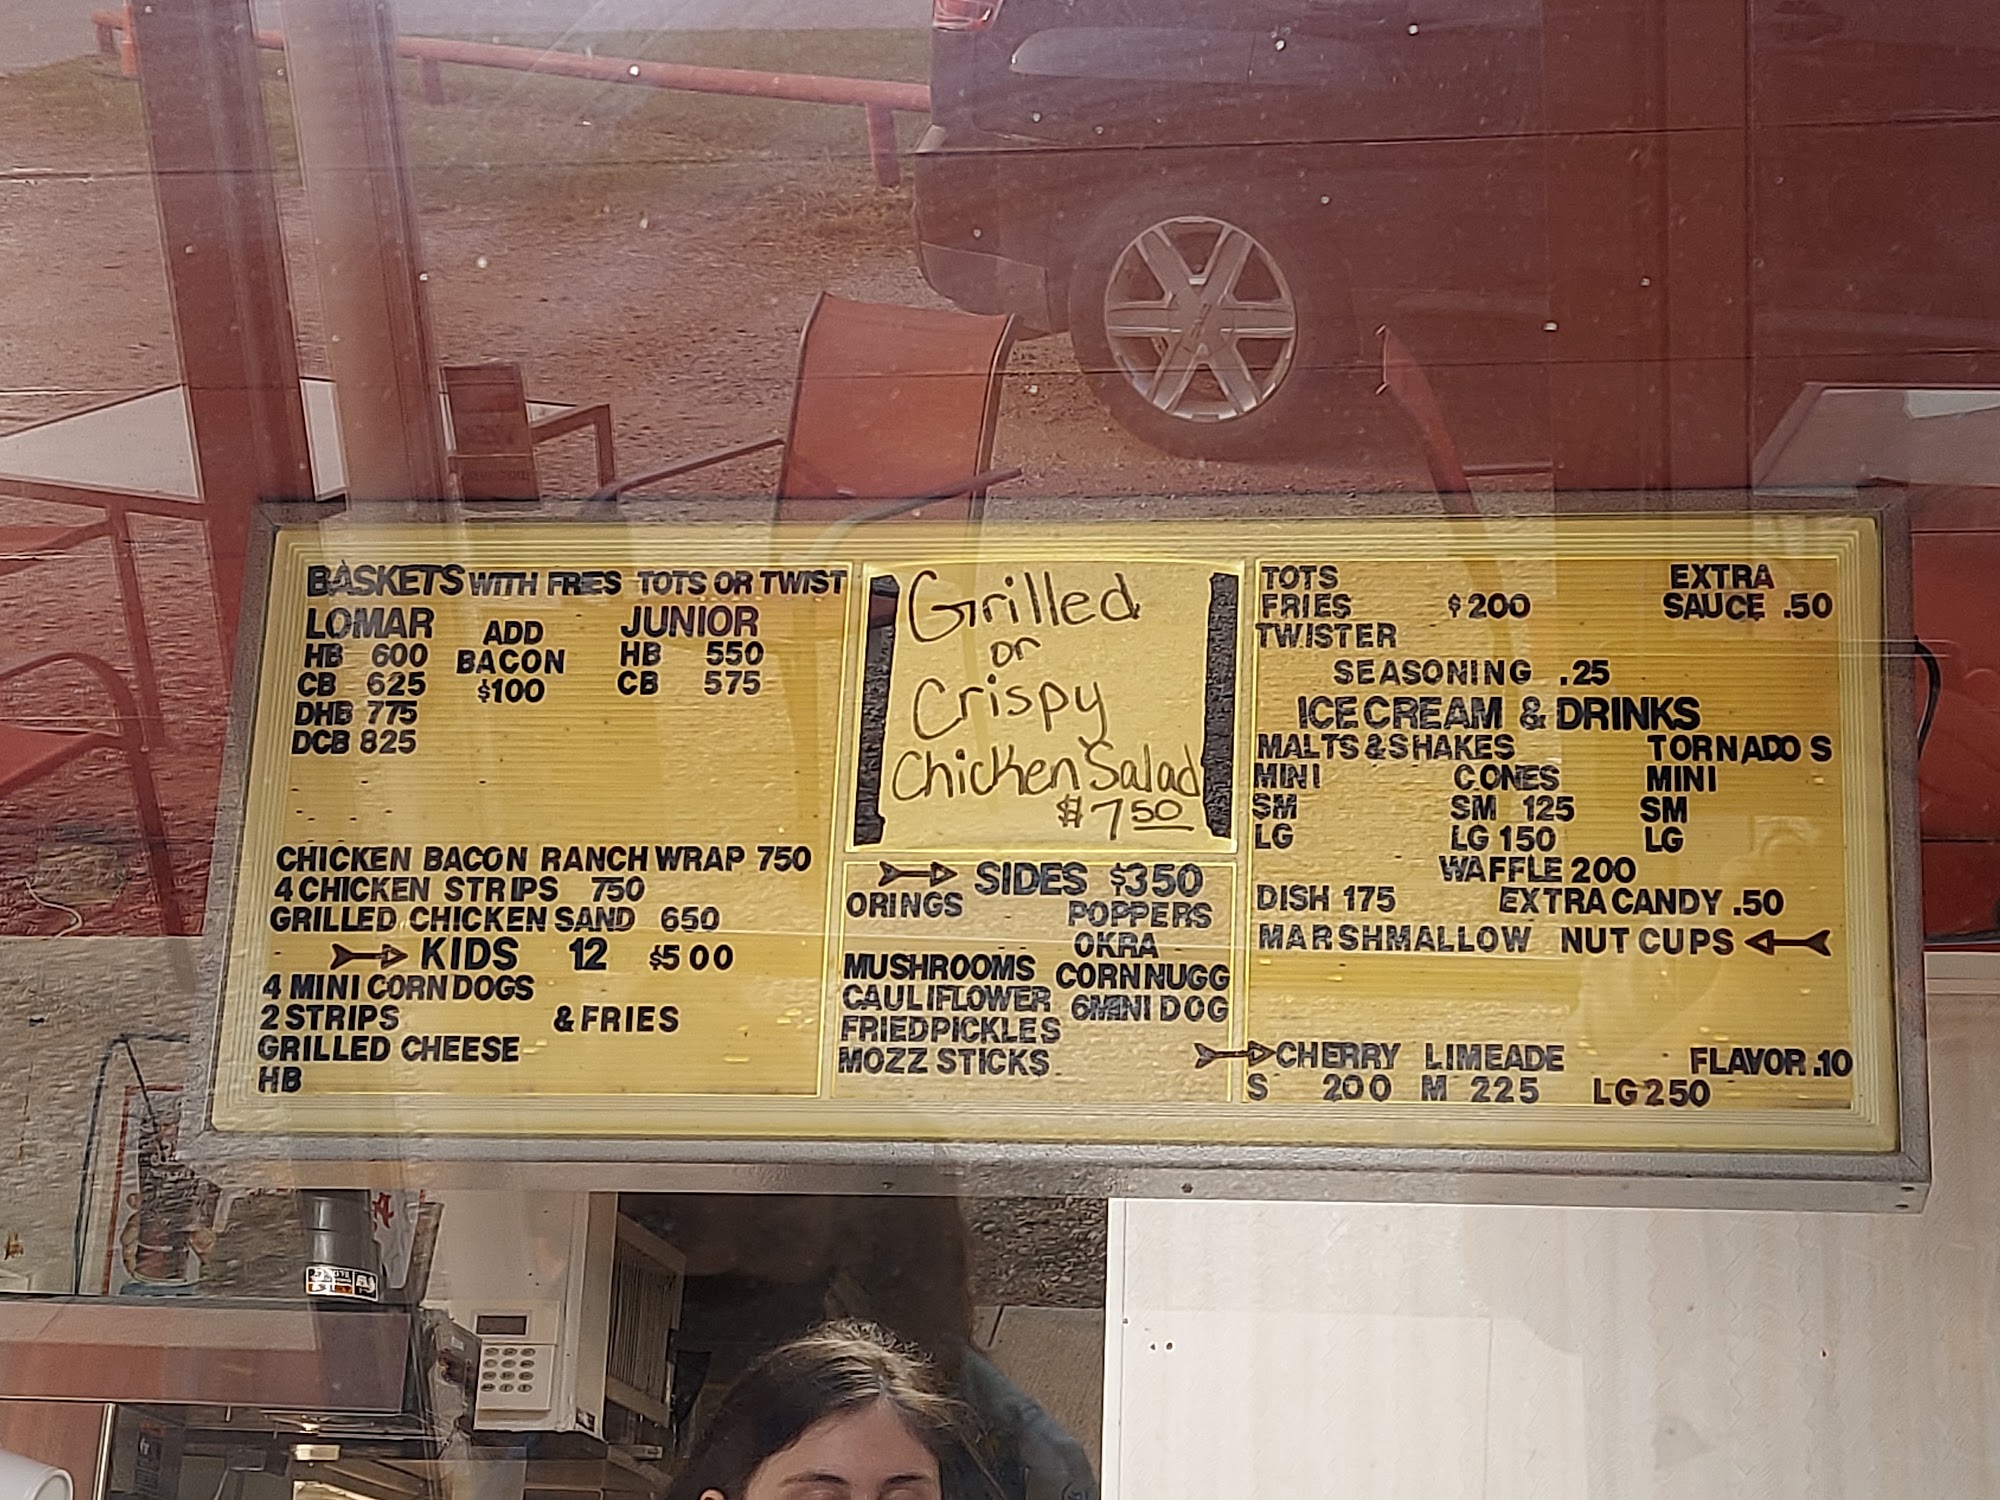 BASKETS WITH FRIES TOTS OR TWIST
LOMAR ADD JUNIOR
HB 600 BACON HB 550
CB 625 $100 CB 575
DHB 775
DCB 825
CHICKEN BACON RANCH WRAP 750
4 CHICKEN STRIPS 750
GRILLED CHICKEN SAND 650
KIDS 12 $500
4 MINI CORNDOGS
2 STRIPS & FRIES
GRILLED CHEESE
HB
Grilled
or
Crispy
Chicken Salad
$7.50
SIDES $350
ORINGS POPPERS
OKRA
MUSHROOMS CORNNUGG
CAULIFLOWER 6MINI DOG
FRIEDPICKLES
MOZZ STICKS
TOTS EXTRA
FRIES $200 SAUCE .50
TWISTER
SEASONING .25
ICE CREAM & DRINKS
MALTS & SHAKES TORNADO S
MINI CONES MINI
SM SM 125 SM
LG LG 150 LG
WAFFLE 200
DISH 175 EXTRA CANDY .50
MARSHMALLOW NUT CUPS
CHERRY LIMEADE FLAVOR .10
S 200 M 225 LG 250